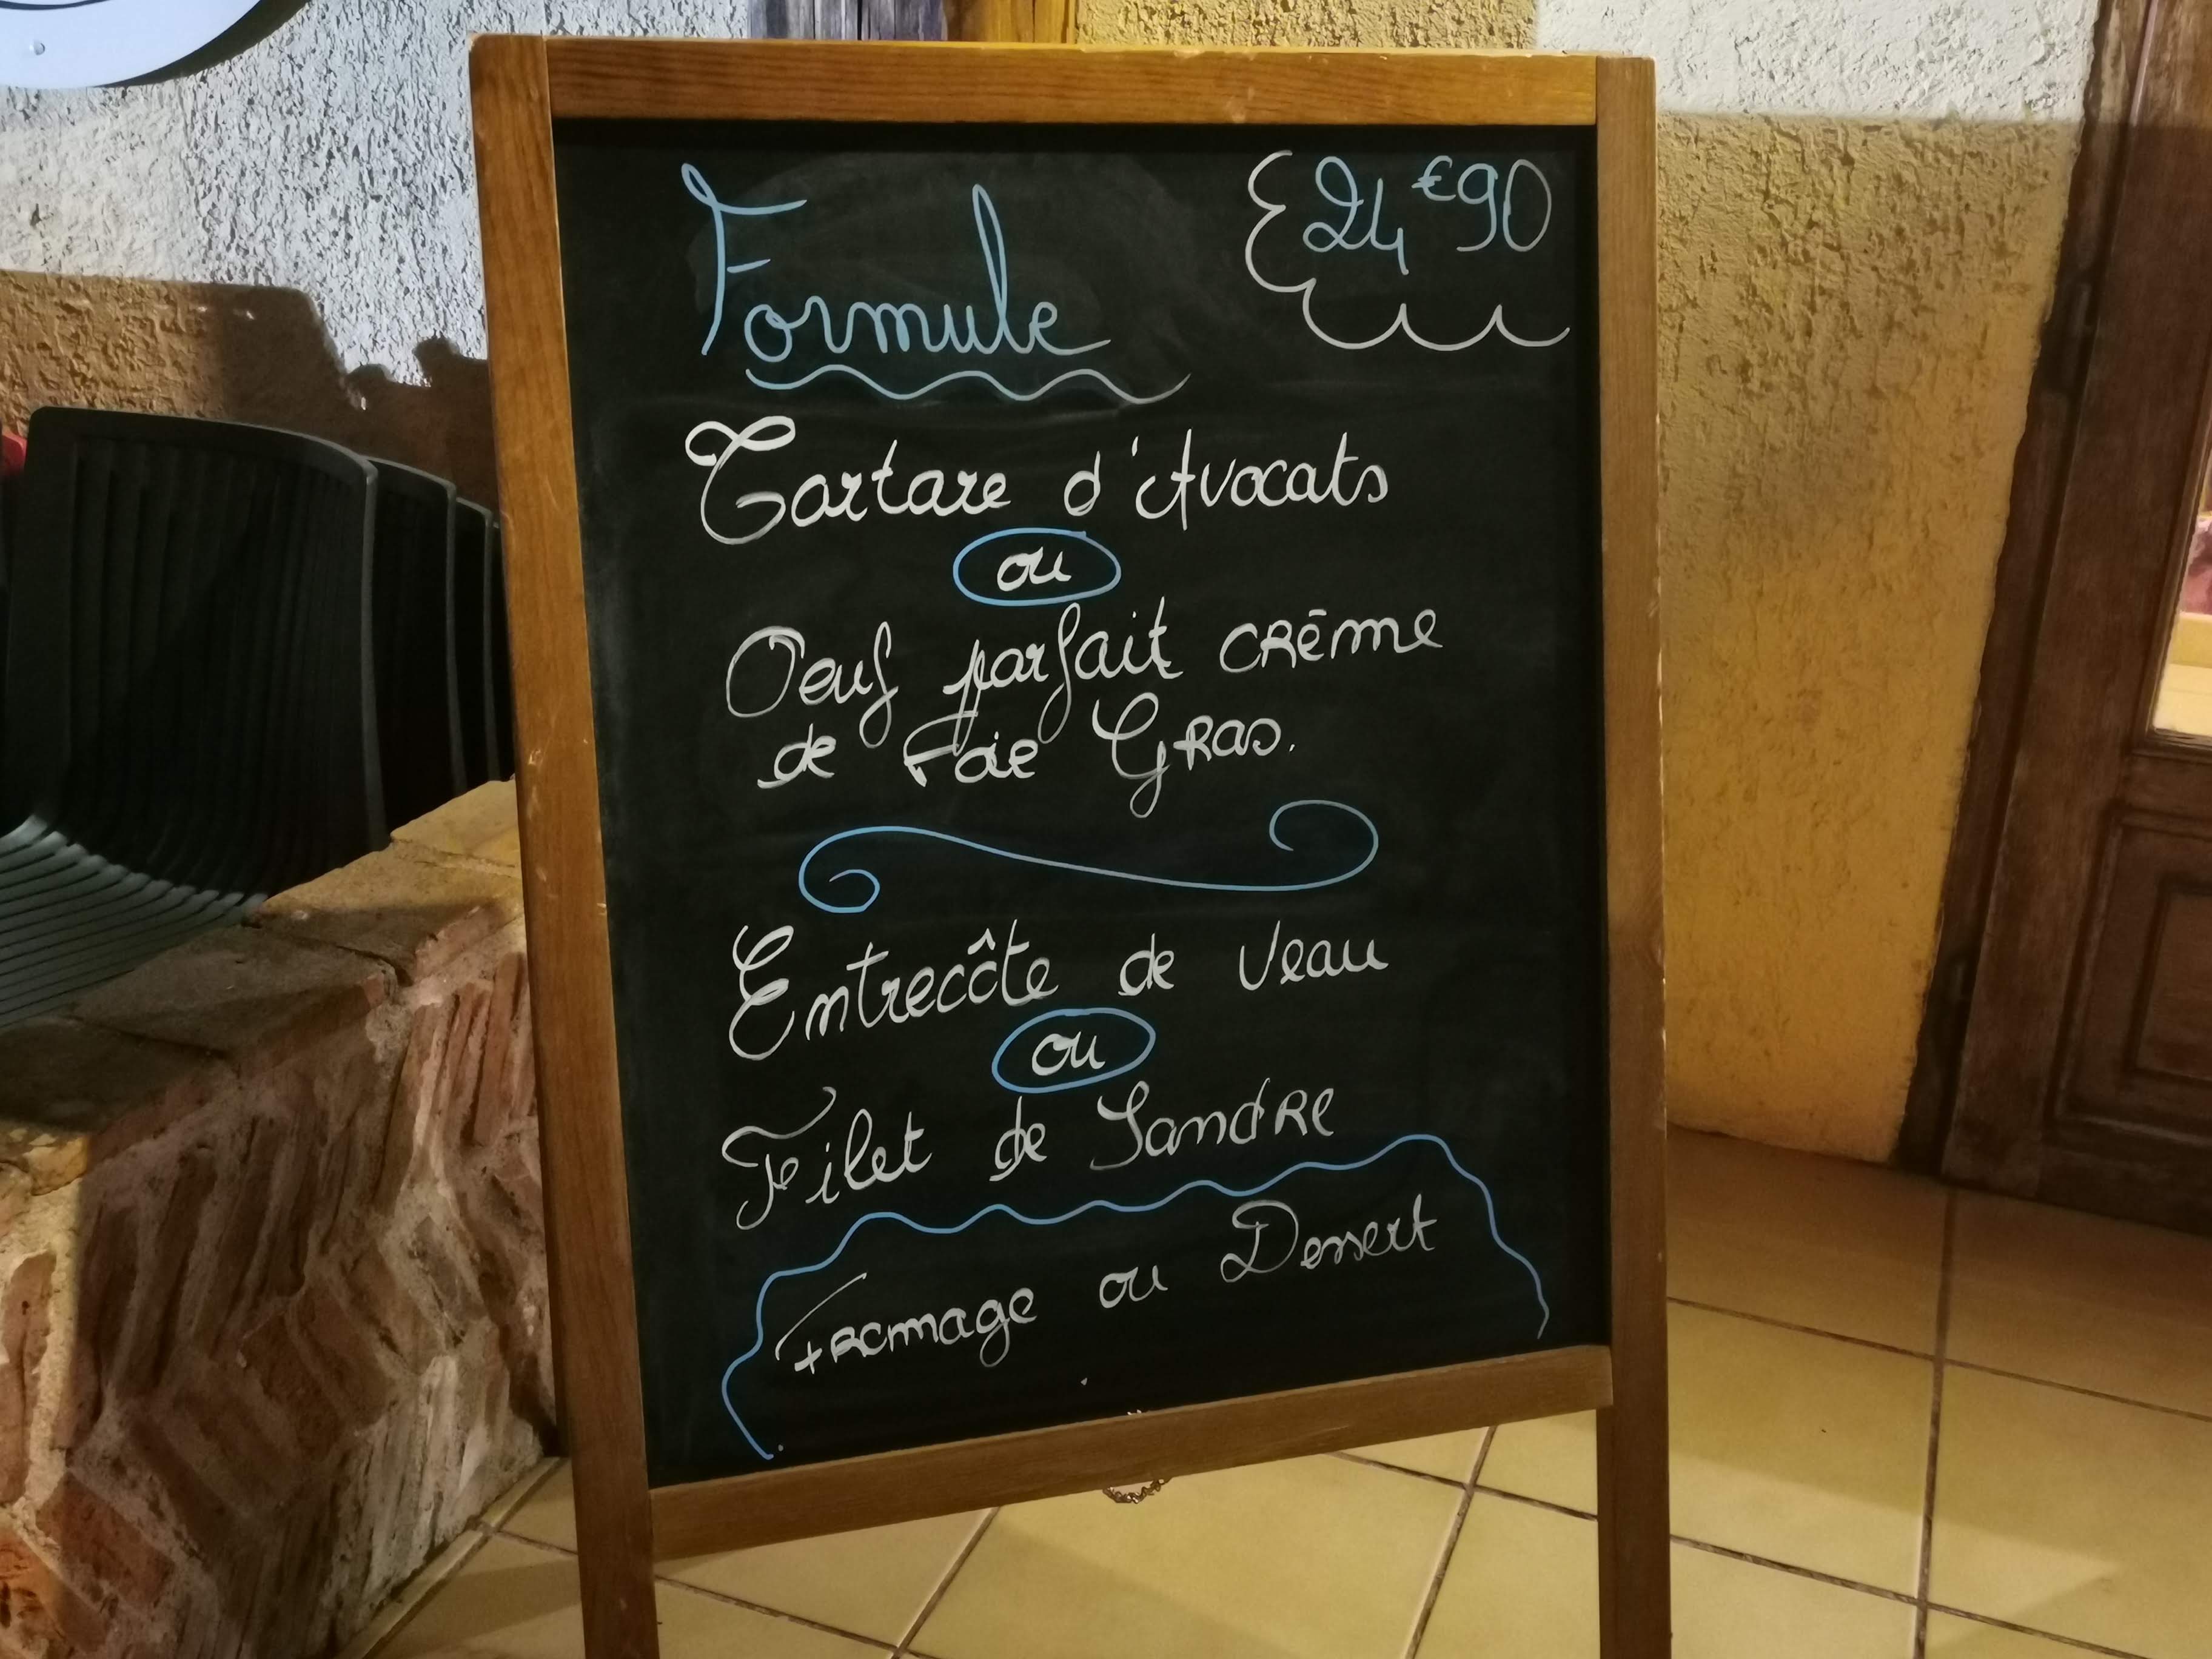 Formule
24€90
Tartare d'Avocats
ou
Oeuf parfait crème
de Foie Gras.
Entrecôte de Veau
ou
Filet de Sandre
Fromage ou Dessert